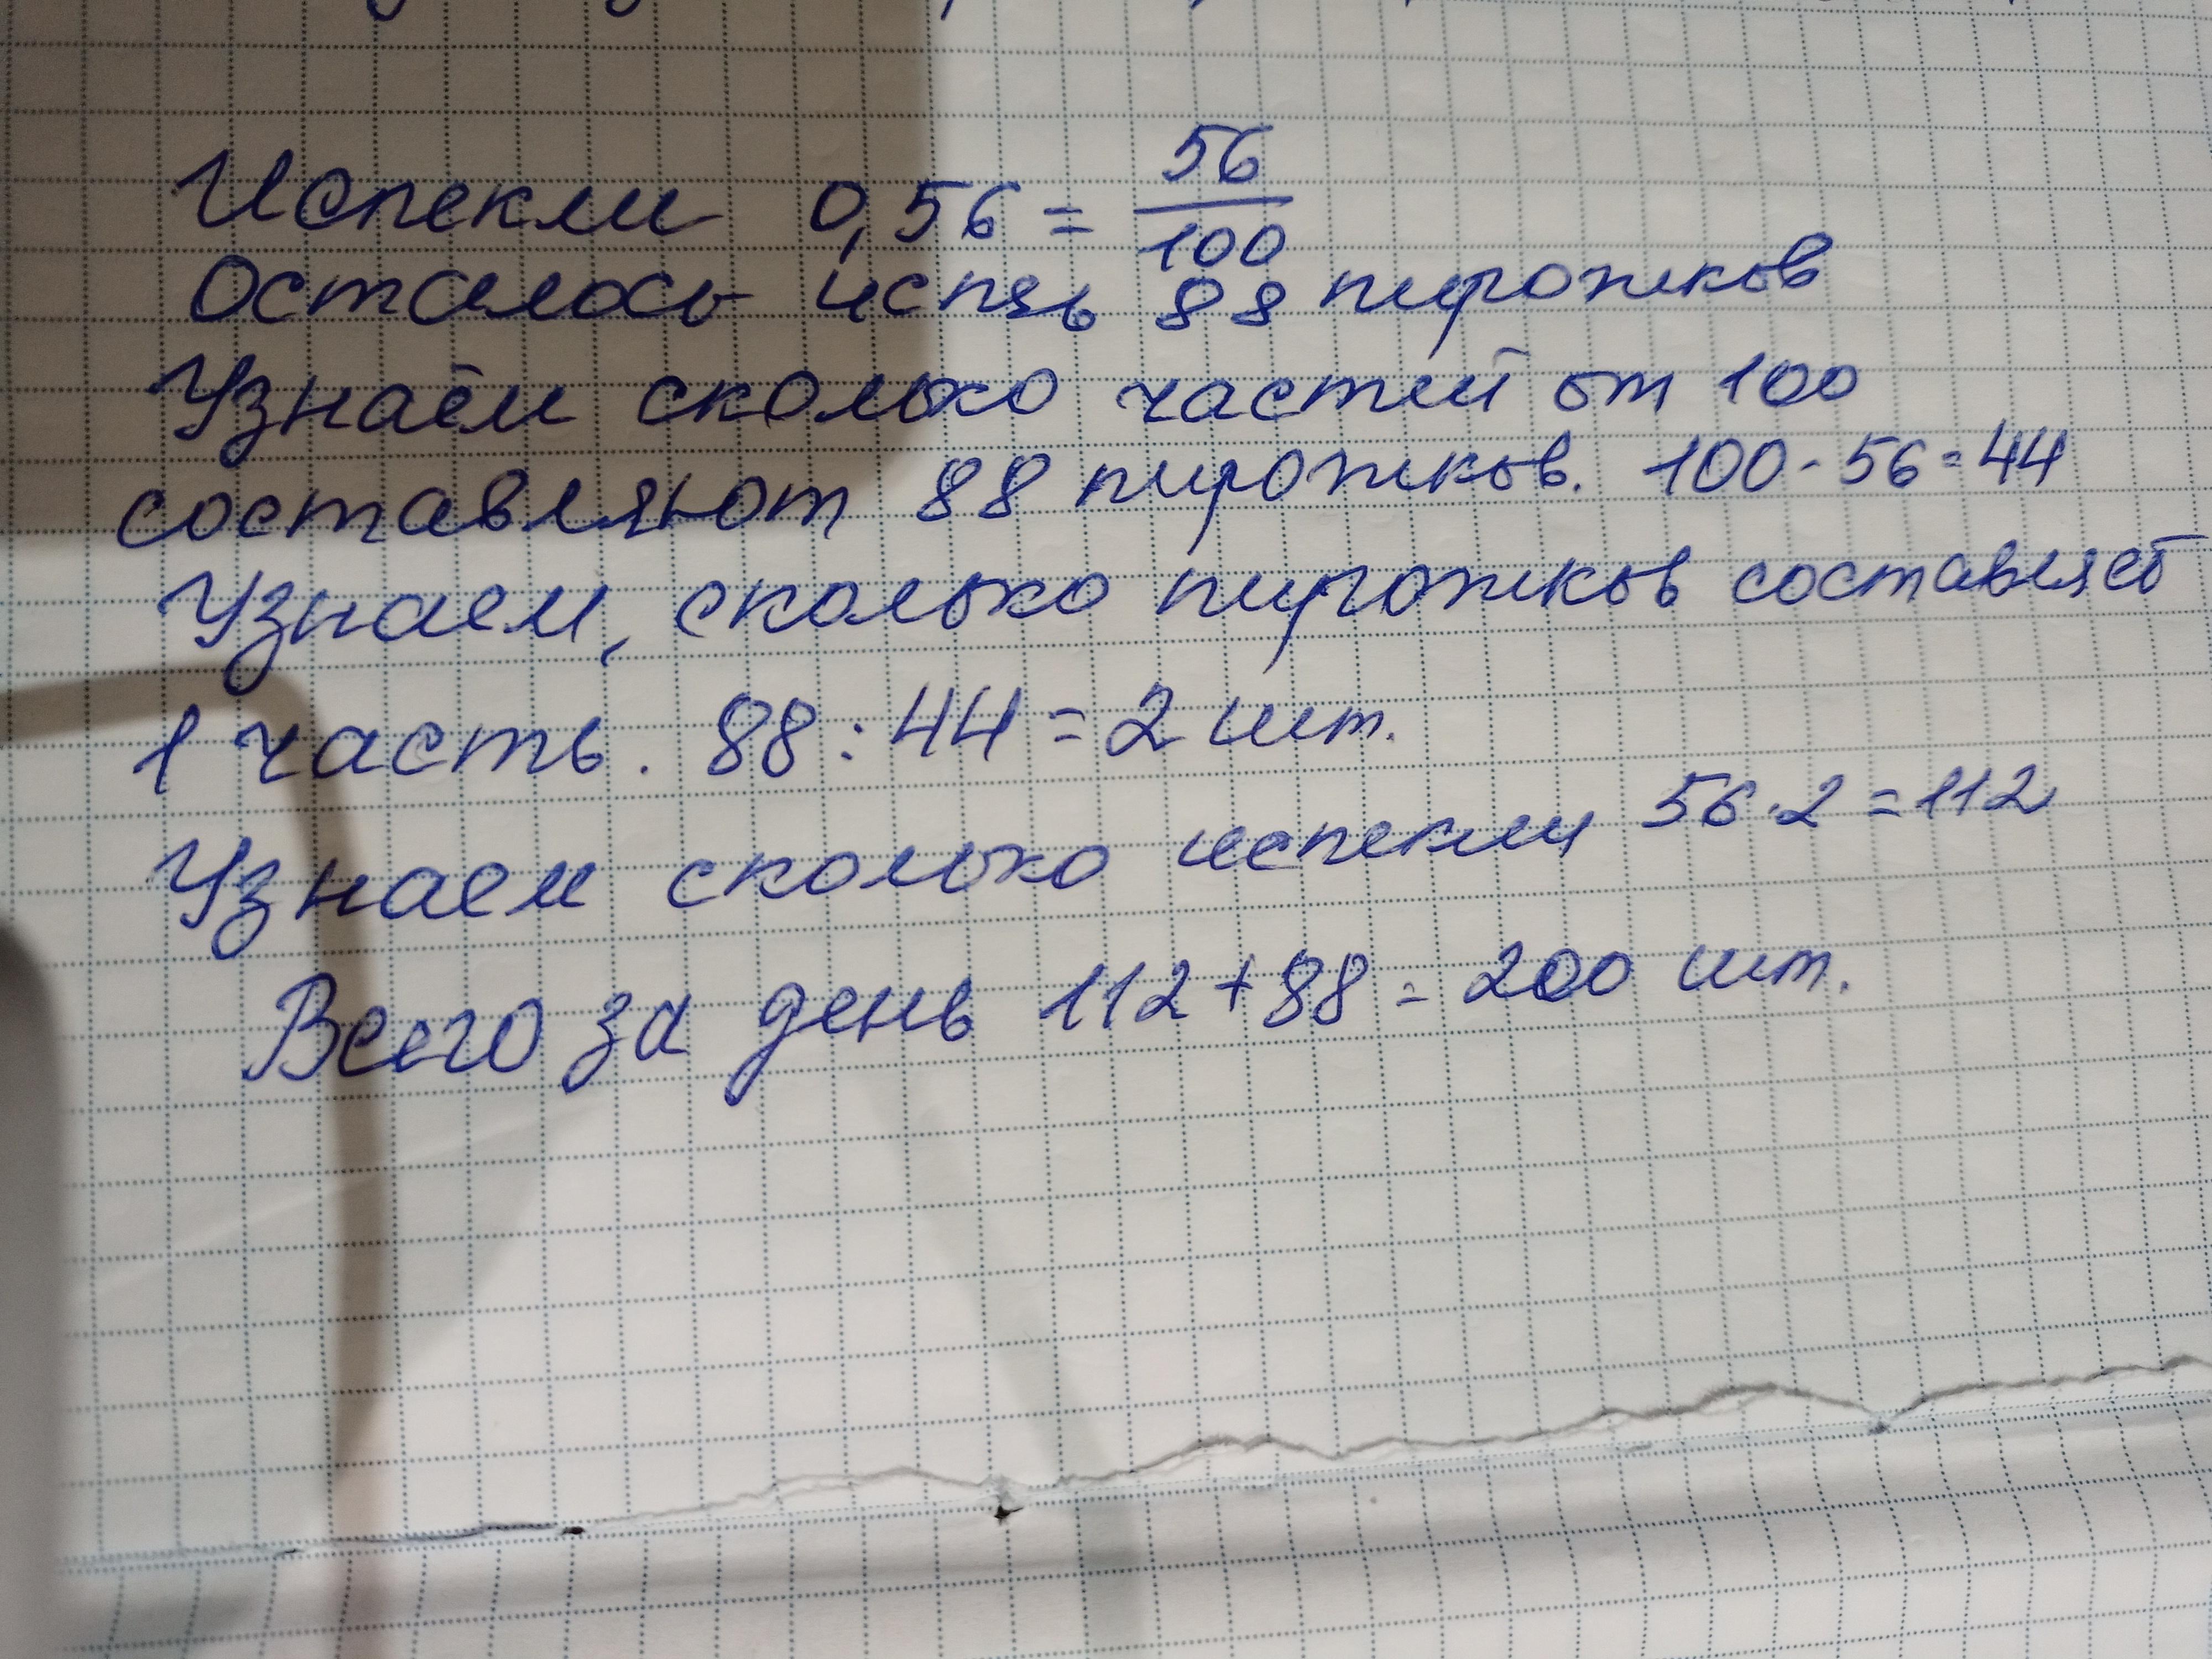 Испекли 0,56 = 56/100
Осталось испяь 88 пирожков
Узнаём сколько частей от 100
составляют 88 пирожков. 100 - 56 = 44
Узнаем, сколько пирожков составляет
1 часть. 88 : 44 = 2 шт.
Узнаем сколько испекли 56 · 2 = 112
Всего за день 112 + 88 = 200 шт.